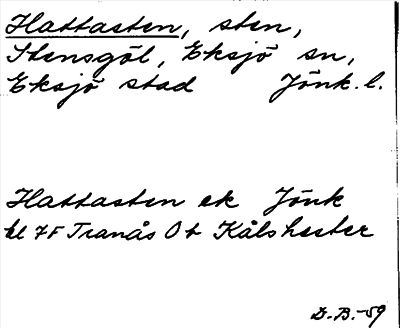 Hattasten, sten,
Stensgöl, Eksjö sn,
Eksjö stad Jönk. l.
Hattasten ek Jönk
bl 7F Tranås Ot Kålshester
D.B.-59